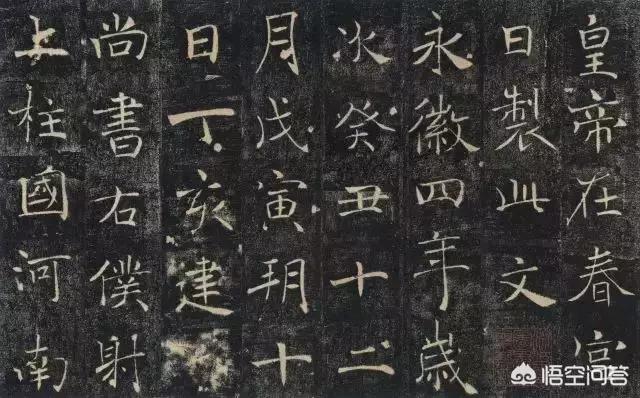 皇帝在春宮
日製此文
永徽四年歲
次癸丑十二
月戊寅朔十
日丁亥建
尚書右僕射
上柱國河南
悟空问答